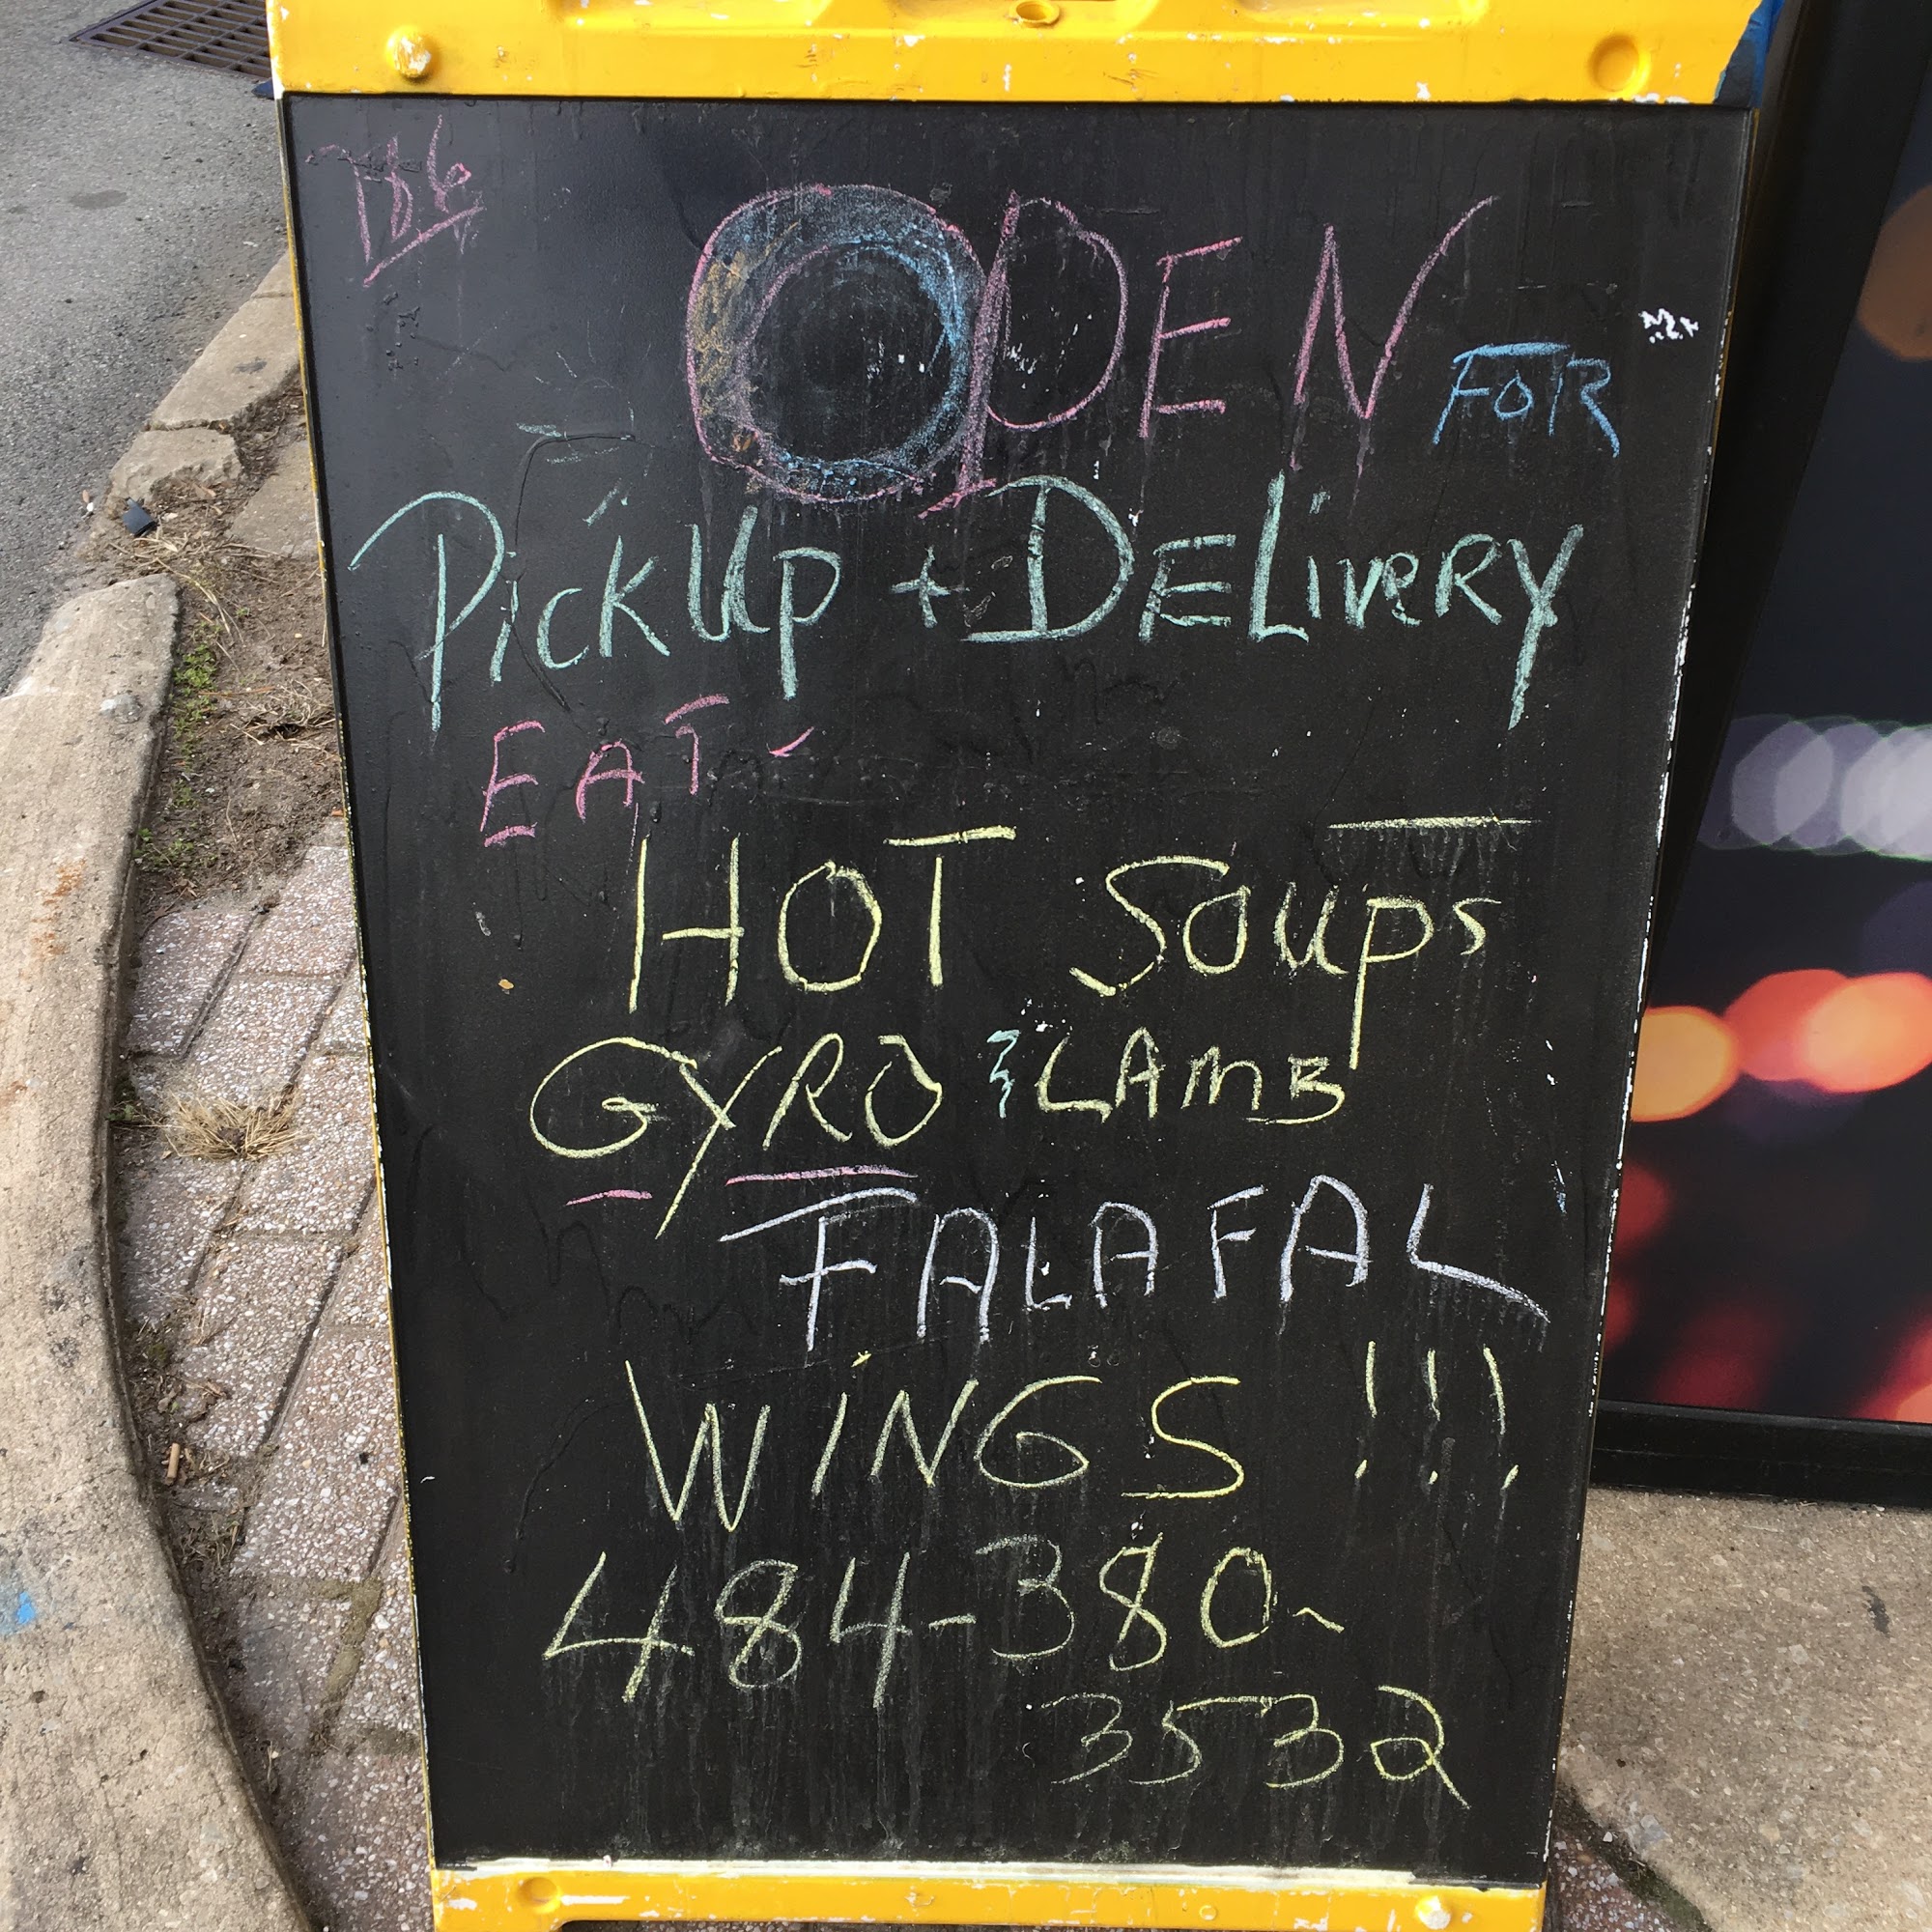 OPEN FOR
PickUp + DELiveRY
EAT
HOT Soups
GYRO & LAMB
FALAFAL
WiNGS !!!
484-380-
3532